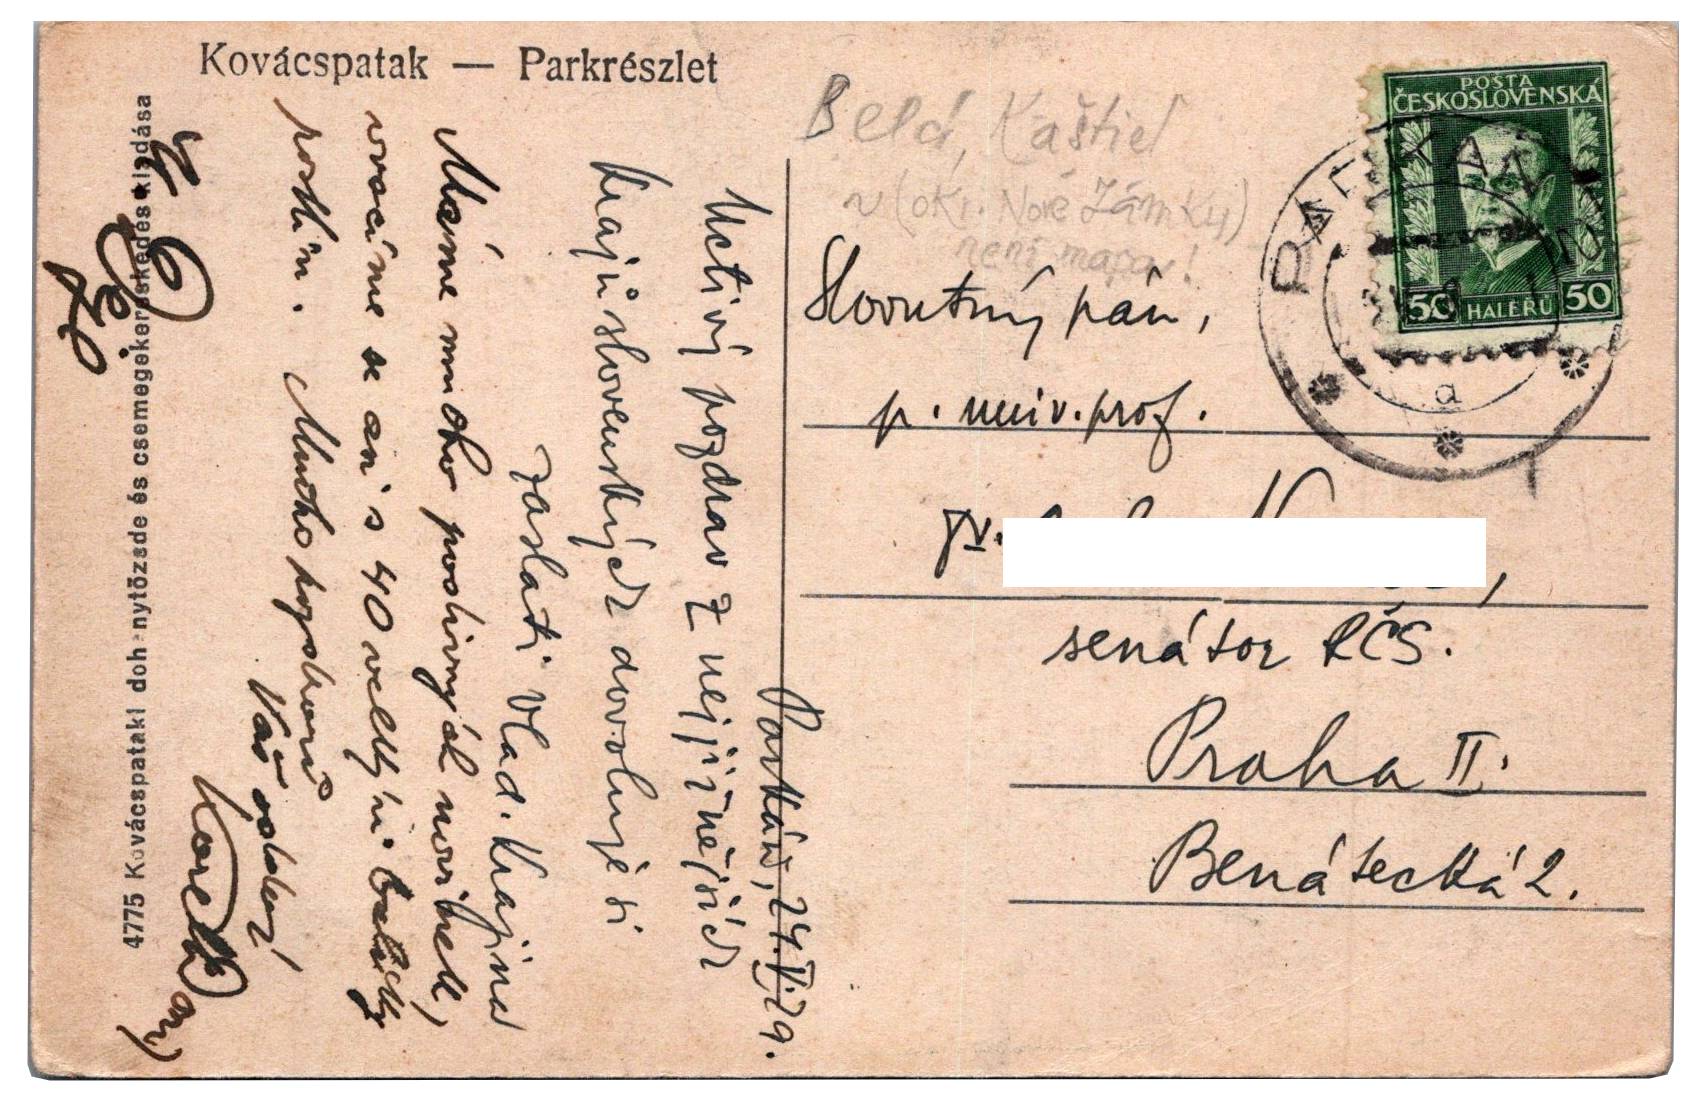 Kovácspatak — Parkrészlet
4775 Kovácspataki doh nytőzsde és csemegekereskedés kiadása
Belá, Kaštiel
v (okr. Nové Zámky)
není mapa!
POŠTA
ČESKOSLOVENSKÁ
50 HALÉŘŮ 50
PARKAN
a
Slovutný pán,
p. univ. prof.
senátor RČS.
Praha II.
Benátecká 2.
Parkán, 24.V.29.
Uctivý pozdrav z nejjižnějších
krajů slovenských dovoluje si
zaslati Vlad. Krajina
Máme mnoho poslivných novinek,
vracíme se ani s 40
rostlin. Mnoho pozdravů
Váš oddaný